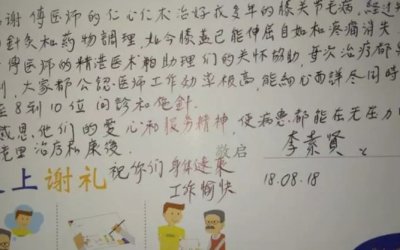 谢 傅医师的仁心仁术治好我多年的膝关节毛病，经过
针灸和药物调理，如今膝盖已能伸屈自如和疼痛消失
傅医师的精湛医术和助理们的关怀协助，每次治疗都
到，大家都公认医师工作效率极高，能细心而详尽同时
至8到10位问诊和施针。
感恩他们的爱心和服务精神，使病患都能在无压力
里治疗和康复。
敬启 李素贤
上 谢礼 祝你们身体健康
工作愉快
18.08.18